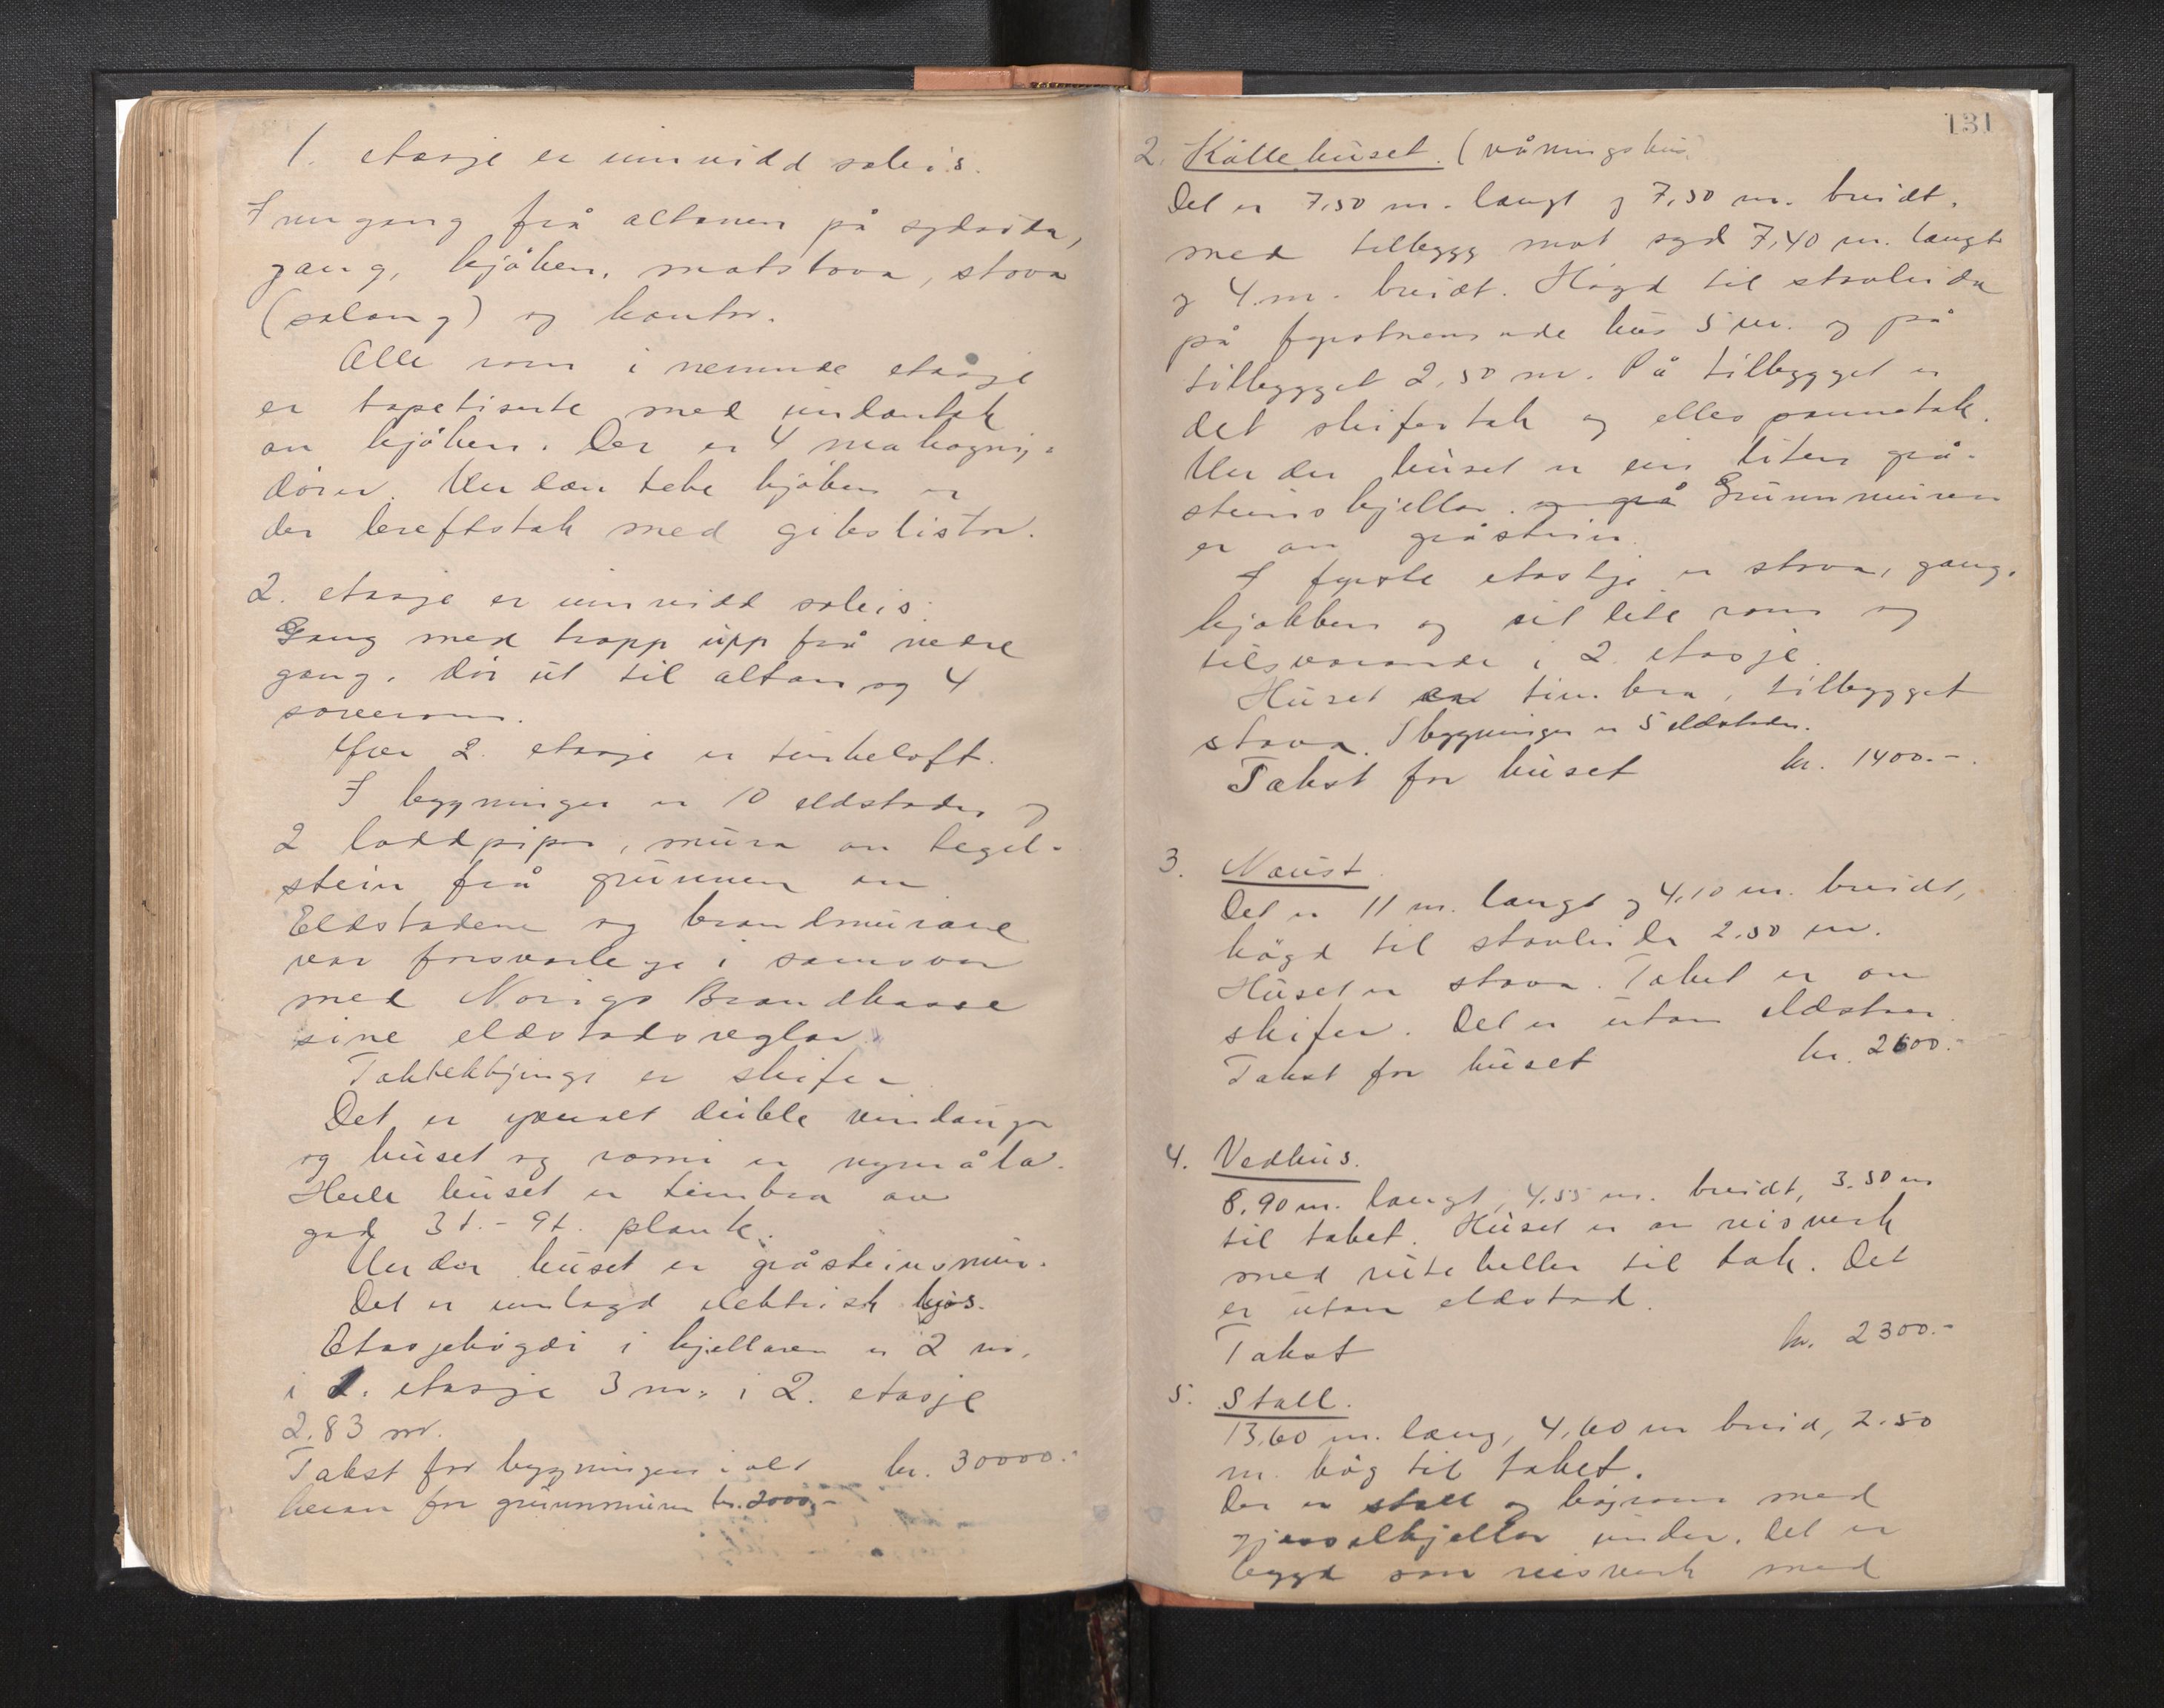 1. etasje er innreidd soleis.
Inngang frå altanen på sydsida,
gang, kjøken, matstova, stova
(salong) og kontor.
Alle rom i nemnde etasje
er tapetiserte med undantak
av kjøken. Der er 4 mahogny-
dører. Undan teke kjøken er
der lereftstak med gibslistor.
2. etasje er innreidd soleis:
Gang med trapp upp frå nedre
gang, dør ut til altan og 4
soverom.
Yver 2. etasje er timbeloft.
I bygningen er 10 eldstader og
2 loddpipor, mura av tegel-
stein frå grunnen av
Eldstadene og brandmurane
var forsvarlege i samsvar
med Norigs Brandkasse
sine eldstadsreglar.
Taktekkjingi er skifer
Det er yveralt duble vindaugo
og huset og romi er nymåla.
Heile huset er timbra av
god 3 t. - 9 t. plank.
Under huset er gråsteinsmur.
Det er innlagd elektrisk ljos.
Etasjehøgdi i kjellaren er 2 m,
i 1. etasje 3 m, i 2. etasje
2.83 m.
Takst for bygningen i alt kr. 30000.-
herav for grunnmuren kr. 2000,-
131
2. Kållehuset. (våningshus)
Det er 7,50 m. langt og 7,50 m. breidt,
med tilbygg mot syd 7,40 m. langt
og 4 m. breidt. Høgd til stavleida
på fyrstnemnde hus 5 m. og på
tilbygget 2,50 m. På tilbygget er
det skifertak og elles pannetak.
Under huset er ein liten grå-
steinskjellar. og grå Grunnmuren
er av gråstein.
I fyrste etasje er stova, gang,
kjøkken og eit lite rom og
tilsvarande i 2. etasje.
Huset er timbra, tilbygget
stava. I bygningen er 5 eldstader.
Takst for huset kr. 1400.-
3. Naust.
Det er 11 m. langt og 4,10 m. breidt,
høgd til stavleida 2.50 m.
Huset er stava. Taket er av
skifer. Det er utan eldstad.
Takst for huset kr. 2600.-
4. Vedhus.
8,90 m. langt, 4,55 m. breidt, 3.50 m
til taket. Huset er av reisverk
med ruteheller til tak. Det
er utan eldstad.
Takst kr. 2300.-
5. Stall.
13,60 m. lang, 4,60 m breid, 2.50
m. høg til taket.
Der er stall og høyrom med
gjødselkjellar under. Det er
bygd som reisverk med